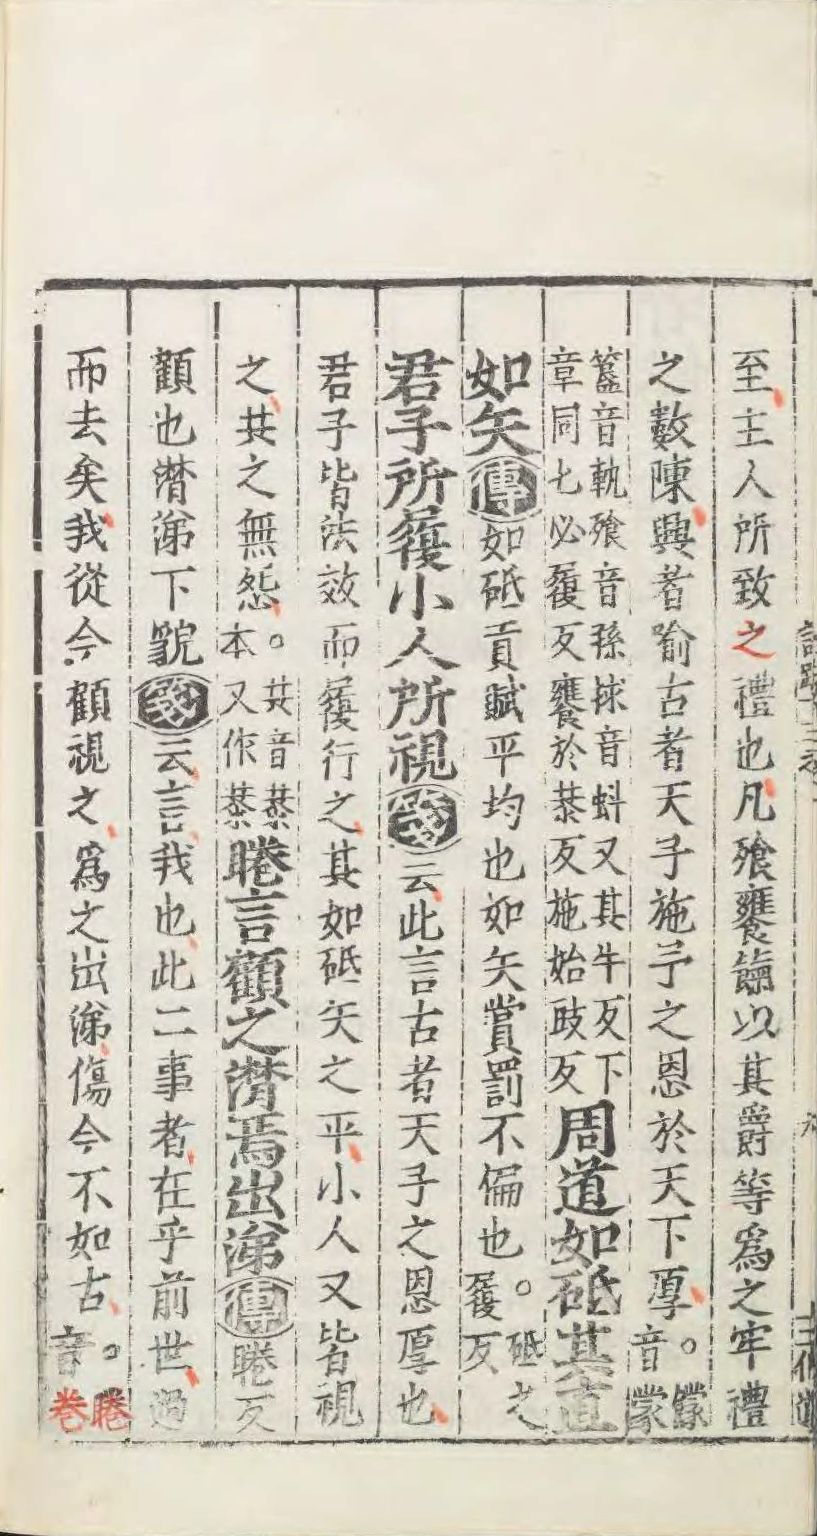 至主人所致之禮也凡飱饔餼以其爵等爲之牢禮
之數陳興者喻古者天子施予之恩於天下厚。饛音蒙
簋音軌飱音孫捄音蚪又其牛反下章同匕必履反饔於恭反施始豉反周道如砥其直
如矢傳如砥貢賦平均也如矢賞罰不偏也。砥之履反
君子所履小人所視箋云此言古者天子之恩厚也
君子皆法效而履行之其如砥矢之平小人又皆視
之共之無怨。共音恭本又作恭睠言顧之潸焉出涕傳睠反
顧也潸涕下貌箋云言我也此二事者在乎前世過
而去矣我從今顧視之爲之出涕傷今不如古。睠音卷